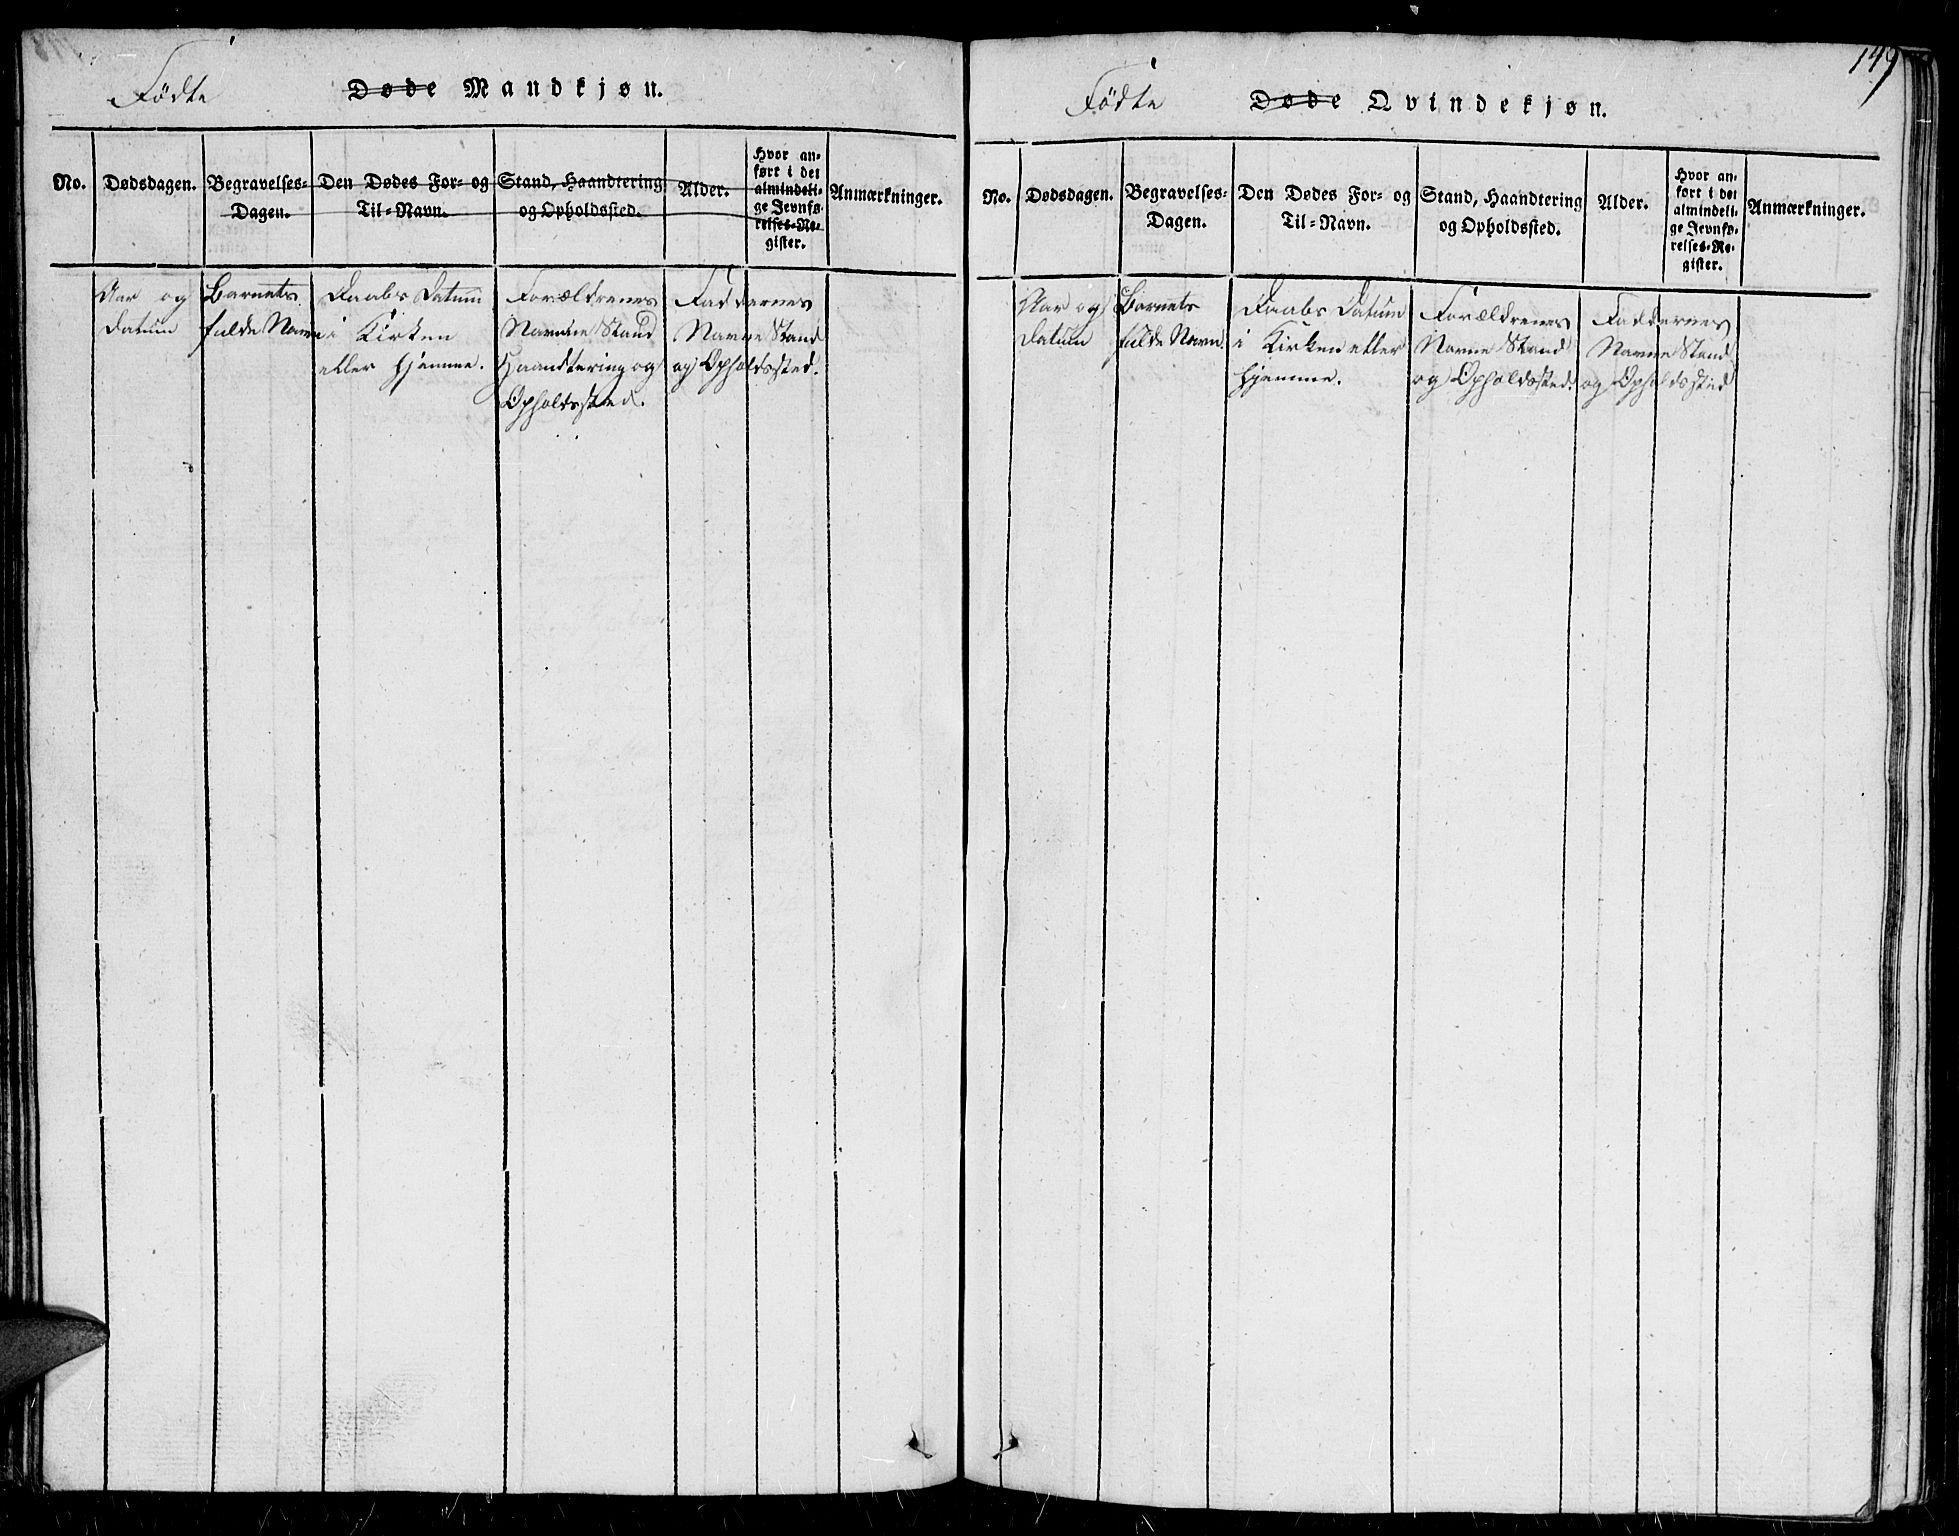 Födte Døde Mandkjøn.
No.
Dødsdagen.
Begravelses-
Dagen.
Den Dødes For- og
Til-Navn.
Stand, Haandtering
og Opholdssted.
Alder.
Hvor an-
ført i det
almindeli-
ge Jevnfø-
relses-Re-
gister.
Anmærkninger.
Aar og
Datum
Barnets
fulde Navn
Daabs Datum
i Kirken
eller hjemme.
Forældrenes
Navne Stand
Haandtering og
Opholdssted.
Faddernes
Navne Stand
og Opholdssted.
149
Födte Døde Qvindekjøn.
No.
Dødsdagen.
Begravelses-
Dagen.
Den Dødes For- og
Til-Navn.
Stand, Haandtering
og Opholdssted.
Alder.
Hvor an-
ført i det
almindeli-
ge Jevnfø-
relses-Re-
gister.
Anmærkninger.
Aar og
Datum
Barnets
fulde Navn
Daabs Datum
i Kirken eller
hjemme.
Forældrenes
Navne Stand
og Opholdssted.
Faddernes
Navne Stand
og Opholdssted